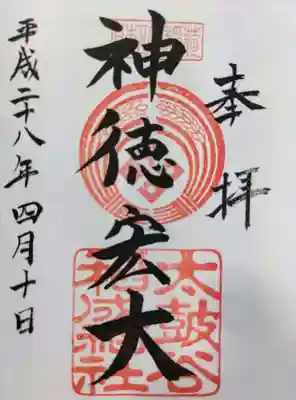 奉拝
神徳宏大
太鼓谷
稲成神社
平成二十八年四月十日